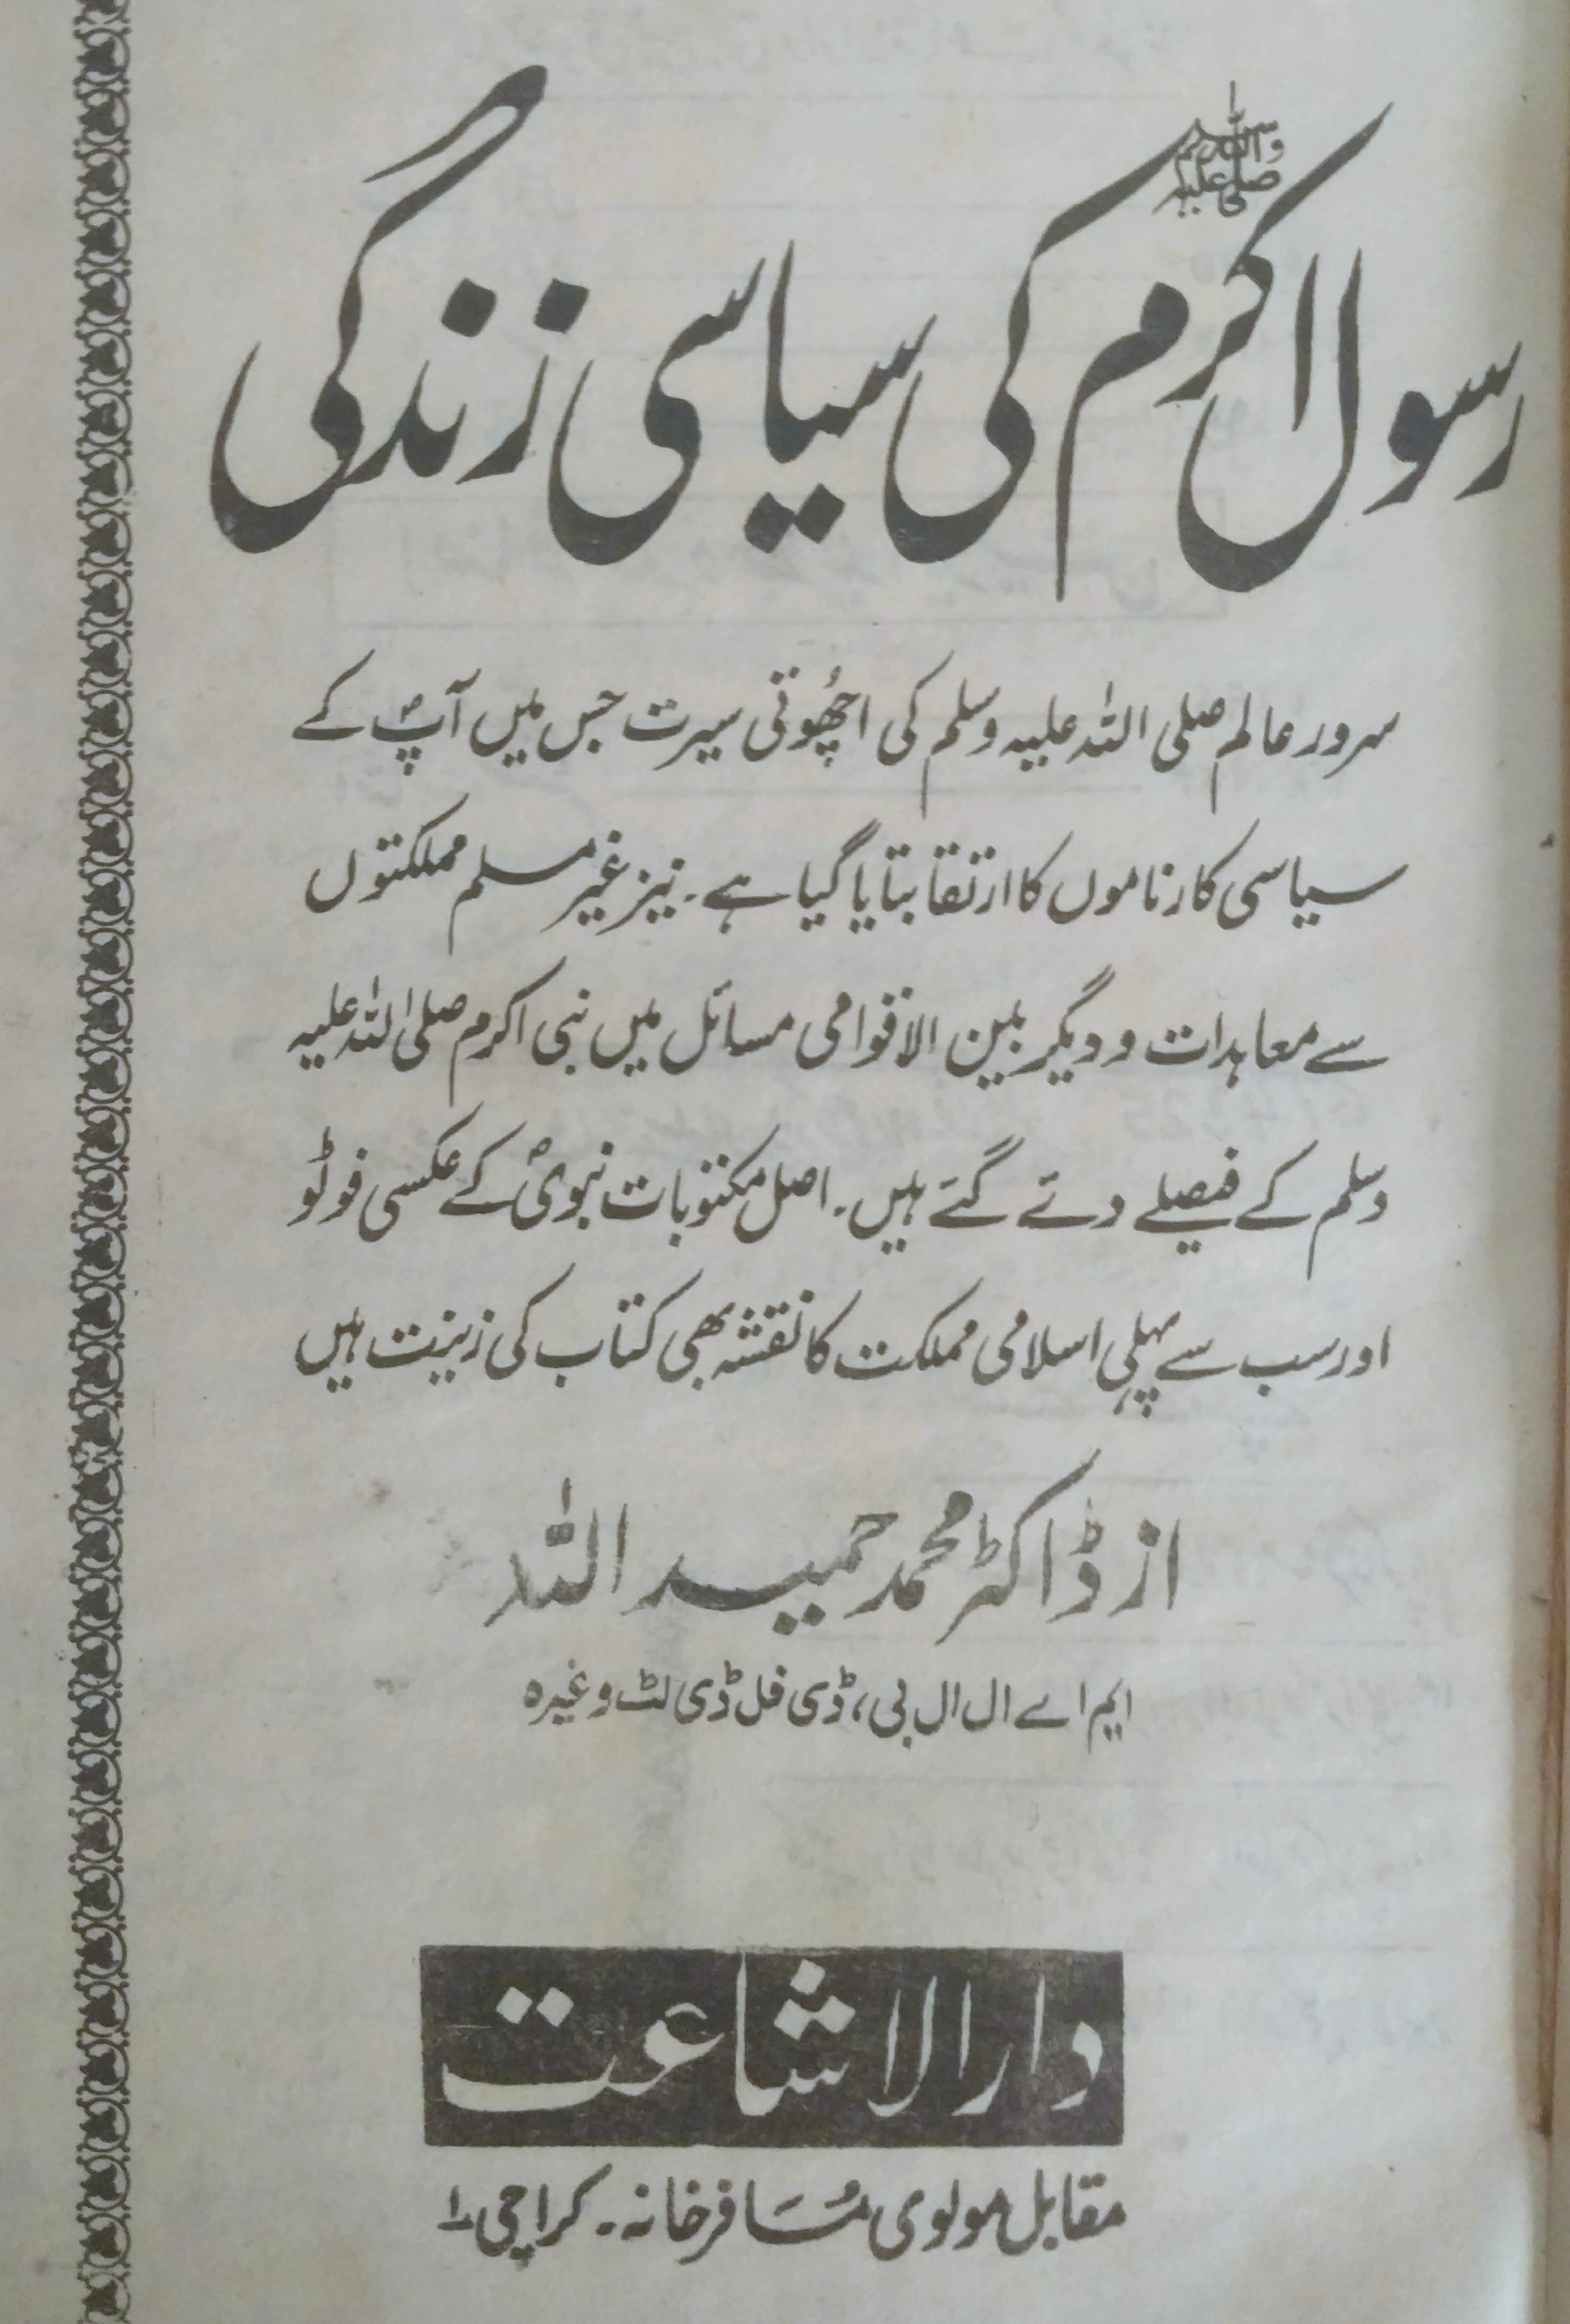 رسول اکرم ﷺ کی سیاسی زندگی
سرور عالم صلی اللہ علیہ وسلم کی اچھُوتی سیرت جس میں آپؐ کے
سیاسی کارناموں کا ارتقا بتایا گیا ہے۔ نیز غیر مسلم مملکتوں
سے معاہدات و دیگر بین الاقوامی مسائل میں نبی اکرم صلی اللہ علیہ
وسلم کے فیصلے دئے گئے ہیں۔ اصل مکتوبات نبویؐ کے عکسی فوٹو
اور سب سے پہلی اسلامی مملکت کا نقشہ بھی کتاب کی زینت ہیں
از ڈاکٹر محمد حمید اللہ
ایم اے ال ال بی، ڈی فل ڈی لٹ وغیرہ
دارالاشاعت
مقابل مولوی مُسَافرخانہ۔ کراچی ۱